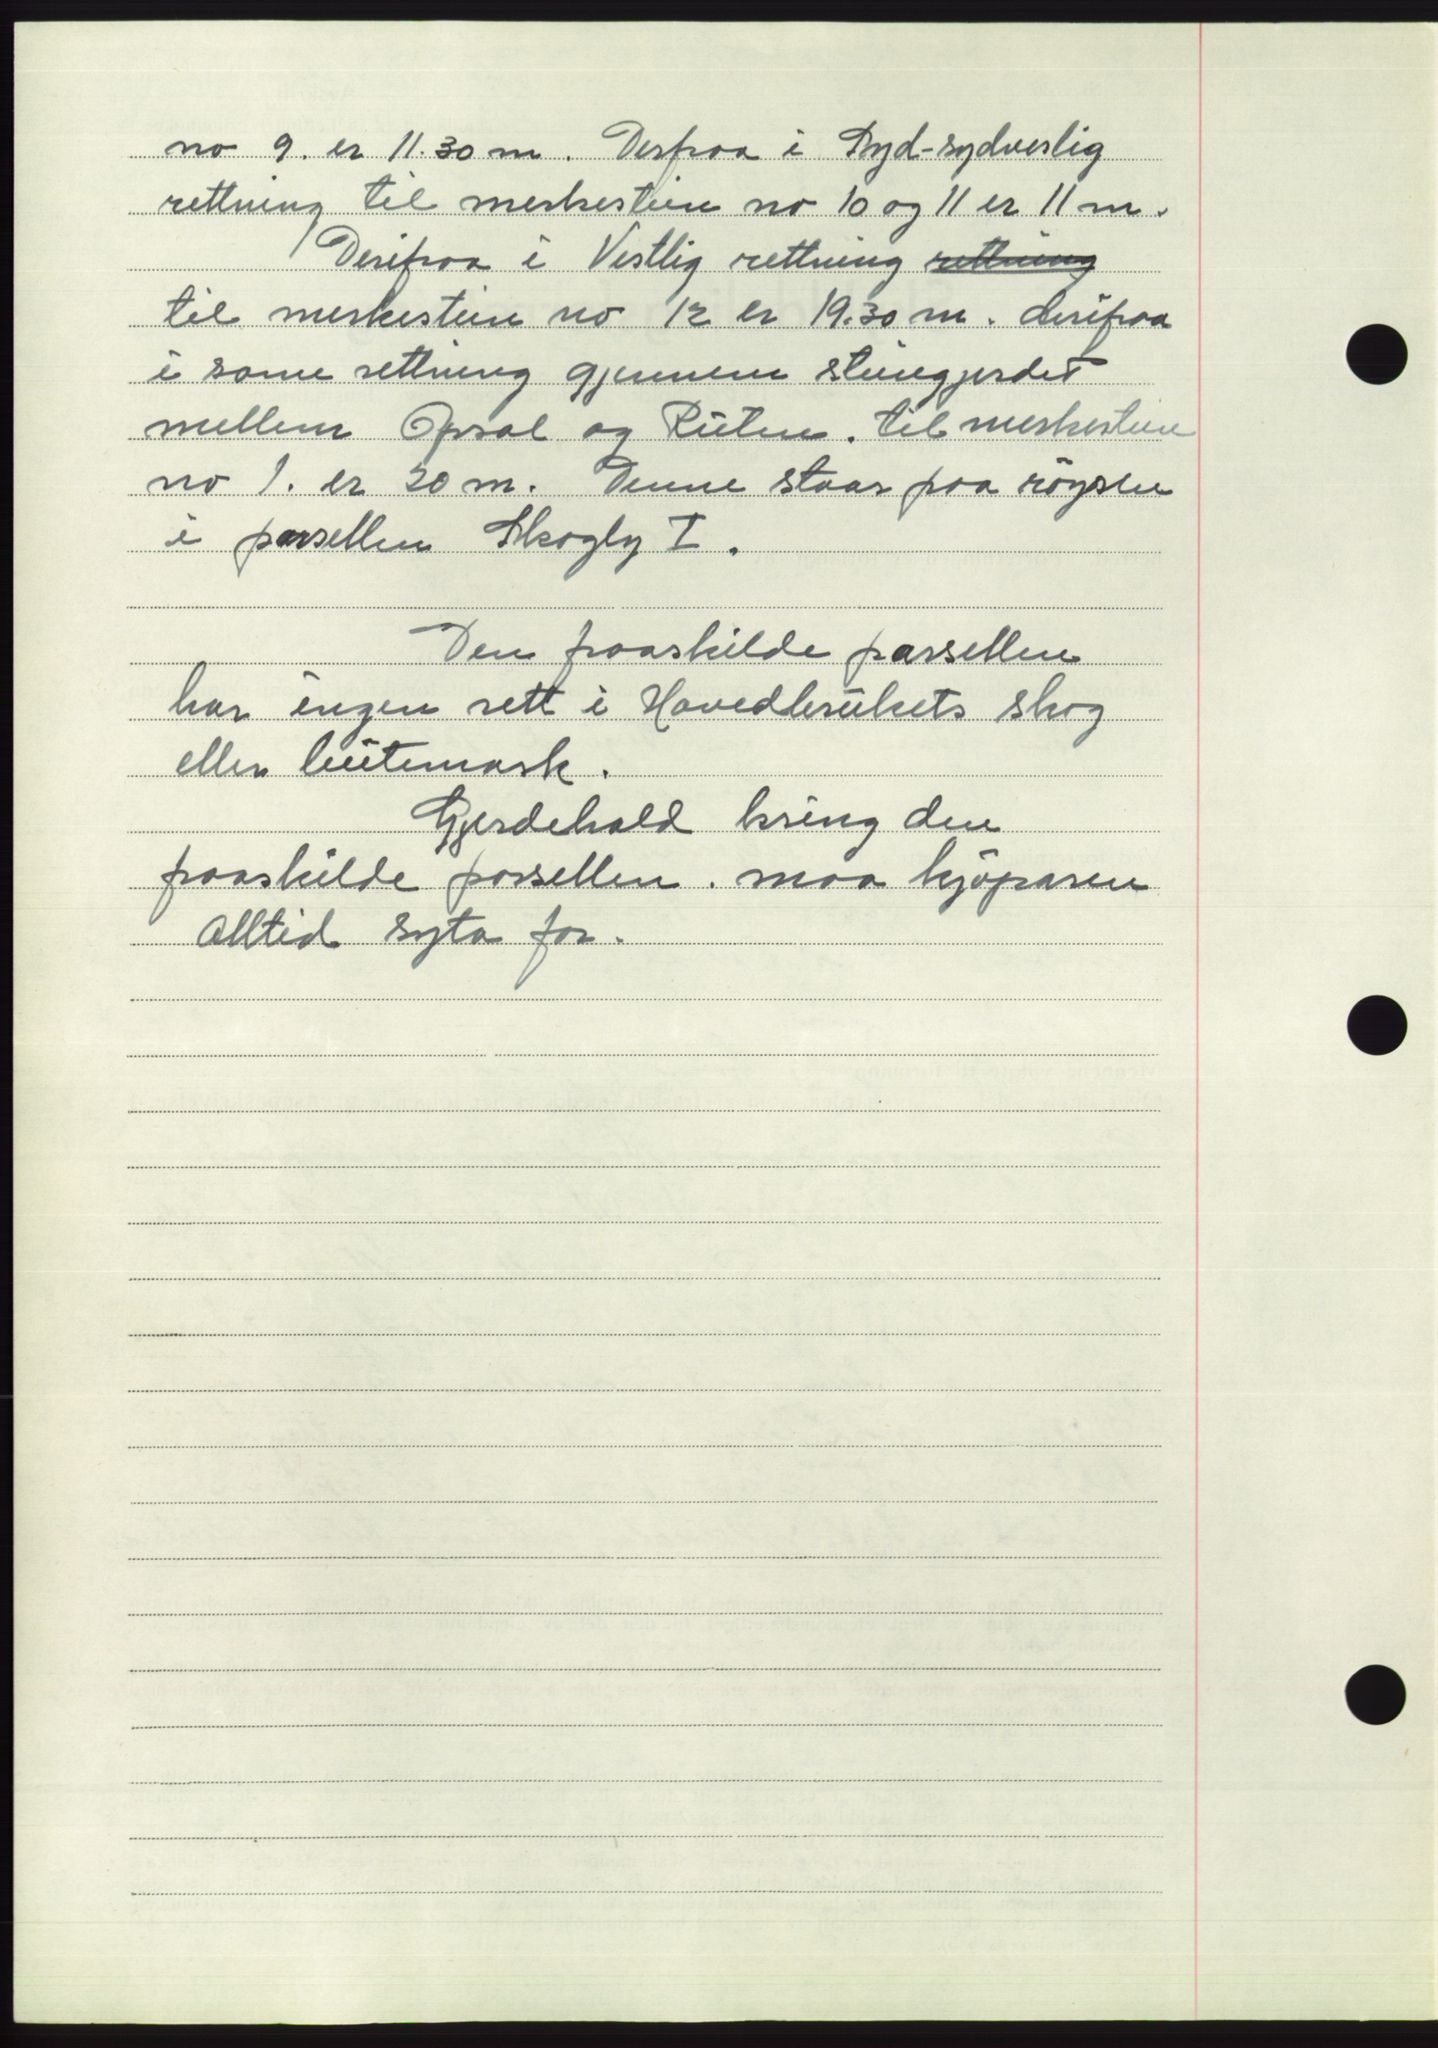 no 9. er 11.30 m. Derfraa i Syd-sydvestlig
rettning til merkestein no 10 og 11 er 11 m.
Derifraa i Vestlig rettning ~~rettning~~
til merkestein no 12 er 19.30 m. derifraa
i same rettning gjennem steingjerdet
mellem Opsal og Ruten. til merkestein
no 1. er 20 m. Denne staar paa röysen
i parsellen Skogly I.
Den fraaskilde parsellen
har ingen rett i Hovedbrukets skog
eller butemark.
Gjerdehald kring den
fraaskilde parsellen. maa kjöparen
alltid syta for.